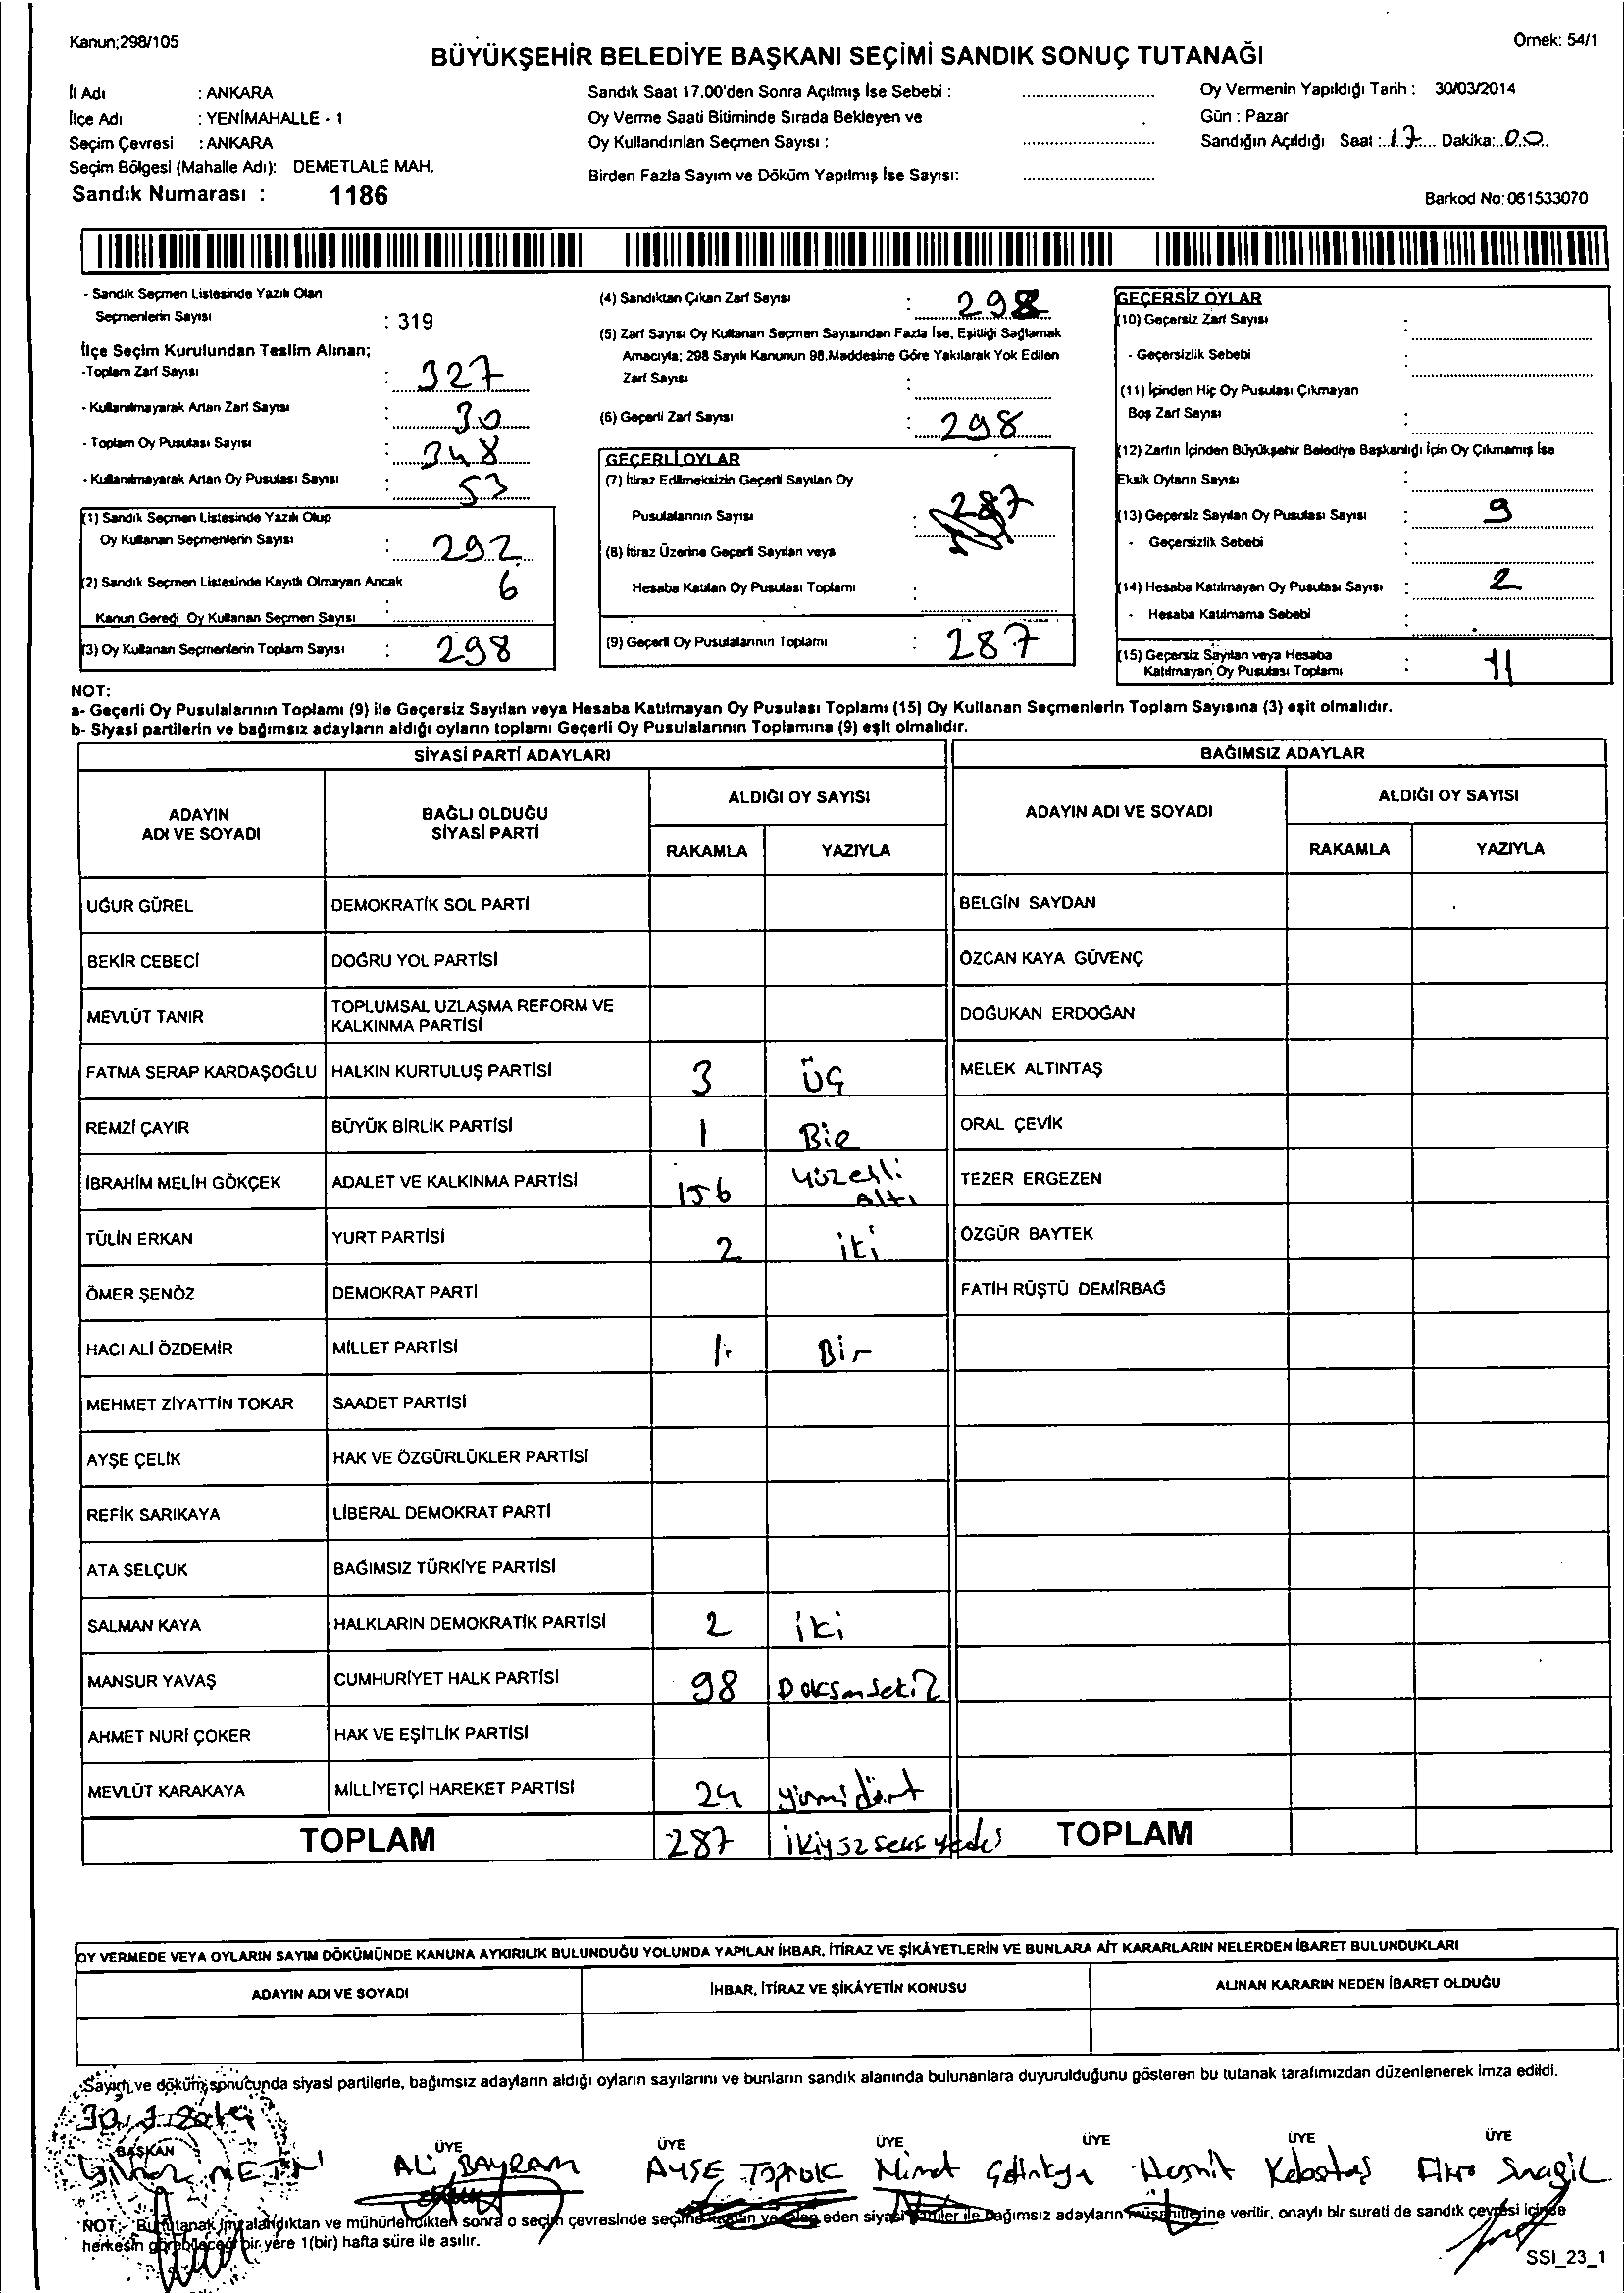 Kanun;298/105
Örnek: 54/1
BÜYÜKŞEHİR BELEDİYE BAŞKANI SEÇİMİ SANDIK SONUÇ TUTANAĞI
İl Adı : ANKARA
İlçe Adı : YENİMAHALLE - 1
Seçim Çevresi : ANKARA
Seçim Bölgesi (Mahalle Adı): DEMETLALE MAH.
Sandık Numarası : 1186
Sandık Saat 17.00'den Sonra Açılmış İse Sebebi :
Oy Verme Saati Bitiminde Sırada Bekleyen ve
Oy Kullandırılan Seçmen Sayısı :
Birden Fazla Sayım ve Döküm Yapılmış İse Sayısı:
Oy Vermenin Yapıldığı Tarih : 30/03/2014
Gün : Pazar
Sandığın Açıldığı Saat : 17 Dakika: 00
Barkod No: 061533070
- Sandık Seçmen Listesinde Yazılı Olan
Seçmenlerin Sayısı : 319
İlçe Seçim Kurulundan Teslim Alınan;
-Toplam Zarf Sayısı : 327
- Kullanılmayarak Artan Zarf Sayısı : 30
- Toplam Oy Pusulası Sayısı : 348
- Kullanılmayarak Artan Oy Pusulası Sayısı : 53
(1) Sandık Seçmen Listesinde Yazılı Olup
Oy Kullanan Seçmenlerin Sayısı : 292
(2) Sandık Seçmen Listesinde Kayıtlı Olmayan Ancak
Kanun Gereği Oy Kullanan Seçmen Sayısı : 6
(3) Oy Kullanan Seçmenlerin Toplam Sayısı : 298
(4) Sandıktan Çıkan Zarf Sayısı : 298
(5) Zarf Sayısı Oy Kullanan Seçmen Sayısından Fazla İse, Eşitliği Sağlamak
Amacıyla; 298 Sayılı Kanunun 98.Maddesine Göre Yakılarak Yok Edilen
Zarf Sayısı :
(6) Geçerli Zarf Sayısı : 298
GEÇERLİ OYLAR
(7) İtiraz Edilmeksizin Geçerli Sayılan Oy
Pusulalarının Sayısı : 287
(8) İtiraz Üzerine Geçerli Sayılan veya
Hesaba Katılan Oy Pusulası Toplamı :
(9) Geçerli Oy Pusulalarının Toplamı : 287
GEÇERSİZ OYLAR
(10) Geçersiz Zarf Sayısı :
- Geçersizlik Sebebi :
(11) İçinden Hiç Oy Pusulası Çıkmayan
Boş Zarf Sayısı :
(12) Zarfın İçinden Büyükşehir Belediye Başkanlığı İçin Oy Çıkmamış İse
Eksik Oyların Sayısı :
(13) Geçersiz Sayılan Oy Pusulası Sayısı : 9
- Geçersizlik Sebebi :
(14) Hesaba Katılmayan Oy Pusulası Sayısı : 2
- Hesaba Katılmama Sebebi :
(15) Geçersiz Sayılan veya Hesaba
Katılmayan Oy Pusulası Toplamı : 11
NOT:
a- Geçerli Oy Pusulalarının Toplamı (9) ile Geçersiz Sayılan veya Hesaba Katılmayan Oy Pusulası Toplamı (15) Oy Kullanan Seçmenlerin Toplam Sayısına (3) eşit olmalıdır.
b- Siyasi partilerin ve bağımsız adayların aldığı oyların toplamı Geçerli Oy Pusulalarının Toplamına (9) eşit olmalıdır.
SİYASİ PARTİ ADAYLARI BAĞIMSIZ ADAYLAR
ADAYIN ADI VE SOYADI BAĞLI OLDUĞU SİYASİ PARTİ ALDIĞI OY SAYISI ADAYIN ADI VE SOYADI ALDIĞI OY SAYISI
RAKAMLA YAZIYLA RAKAMLA YAZIYLA
UĞUR GÜREL DEMOKRATİK SOL PARTİ BELGİN SAYDAN
BEKİR CEBECİ DOĞRU YOL PARTİSİ ÖZCAN KAYA GÜVENÇ
MEVLÜT TANIR TOPLUMSAL UZLAŞMA REFORM VE KALKINMA PARTİSİ DOĞUKAN ERDOĞAN
FATMA SERAP KARDAŞOĞLU HALKIN KURTULUŞ PARTİSİ 3 ÜÇ MELEK ALTINTAŞ
REMZİ ÇAYIR BÜYÜK BİRLİK PARTİSİ 1 Bir ORAL ÇEVİK
İBRAHİM MELİH GÖKÇEK ADALET VE KALKINMA PARTİSİ 156 Yüzelli Altı TEZER ERGEZEN
TÜLİN ERKAN YURT PARTİSİ 2 iki ÖZGÜR BAYTEK
ÖMER ŞENÖZ DEMOKRAT PARTİ FATİH RÜŞTÜ DEMİRBAĞ
HACI ALİ ÖZDEMİR MİLLET PARTİSİ 1 Bir
MEHMET ZİYATTİN TOKAR SAADET PARTİSİ
AYŞE ÇELİK HAK VE ÖZGÜRLÜKLER PARTİSİ
REFİK SARIKAYA LİBERAL DEMOKRAT PARTİ
ATA SELÇUK BAĞIMSIZ TÜRKİYE PARTİSİ
SALMAN KAYA HALKLARIN DEMOKRATİK PARTİSİ 2 iki
MANSUR YAVAŞ CUMHURİYET HALK PARTİSİ 98 Doksansekiz
AHMET NURİ ÇOKER HAK VE EŞİTLİK PARTİSİ
MEVLÜT KARAKAYA MİLLİYETÇİ HAREKET PARTİSİ 24 yirmidört
TOPLAM 287 TOPLAM
OY VERMEDE VEYA OYLARIN SAYIM DÖKÜMÜNDE KANUNA AYKIRILIK BULUNDUĞU YOLUNDA YAPILAN İHBAR, İTİRAZ VE ŞİKÂYETLERİN VE BUNLARA AİT KARARLARIN NELERDEN İBARET BULUNDUKLARI
ADAYIN ADI VE SOYADI İHBAR, İTİRAZ VE ŞİKÂYETİN KONUSU ALINAN KARARIN NEDEN İBARET OLDUĞU
Sayım ve döküm sonucunda siyasi partilerle, bağımsız adayların aldığı oyların sayılarını ve bunların sandık alanında bulunanlara duyurulduğunu gösteren bu tutanak tarafımızdan düzenlenerek imza edildi.
BAŞKAN ÜYE ÜYE ÜYE ÜYE ÜYE ÜYE
METİN ALİ BAYRAM AYŞE TOPRAK
NOT:- Bu tutanak imzalandıktan ve mühürlendikten sonra o seçim çevresinde seçime katılan ve talep eden siyasi partiler ile bağımsız adayların müşahitlerine verilir, onaylı bir sureti de sandık çevresi içinde
herkesin görebileceği bir yere 1(bir) hafta süre ile asılır.
SSI_23_1